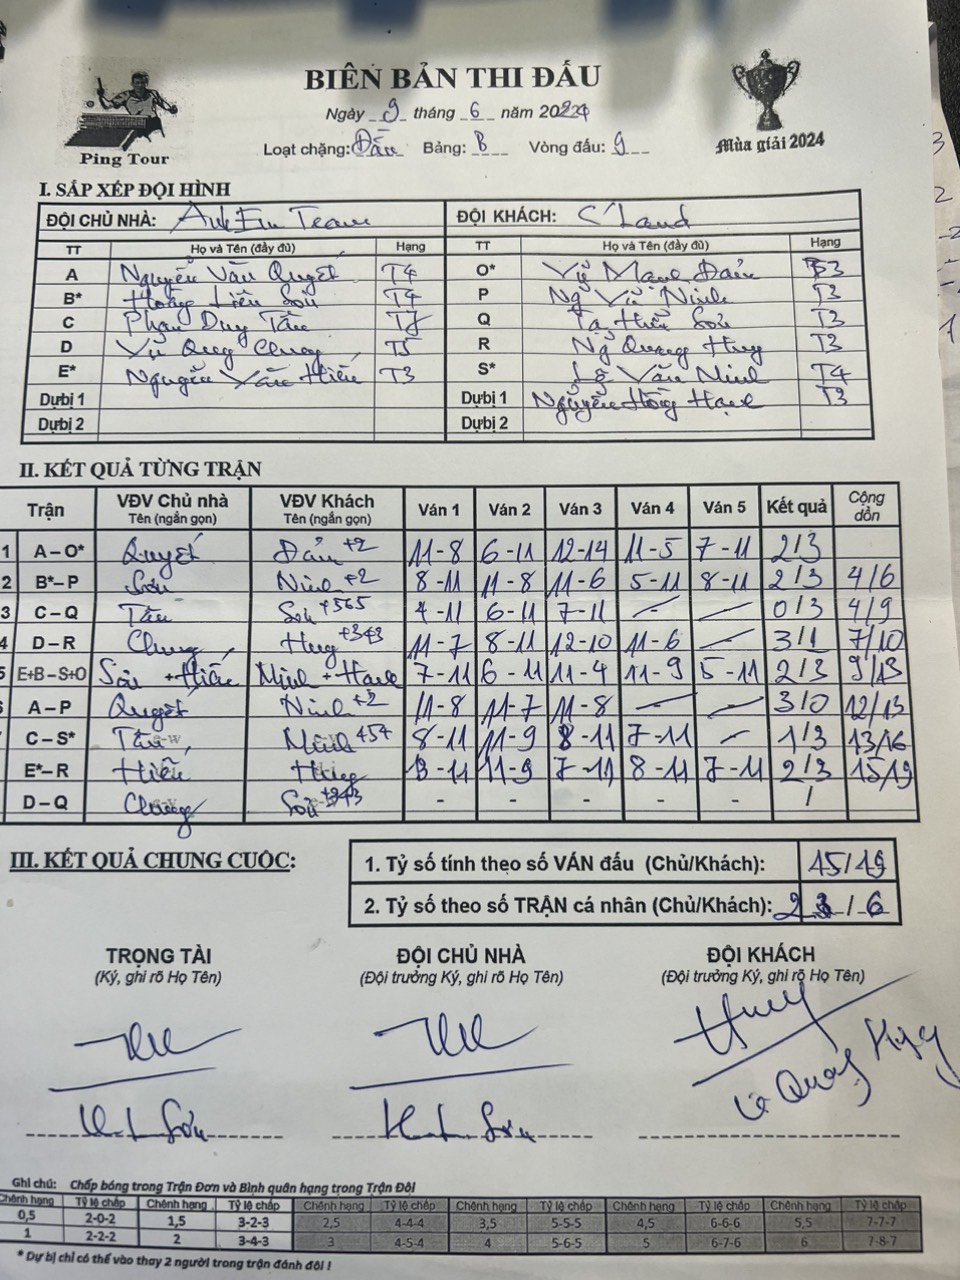 BIÊN BẢN THI ĐẤU
Ngày 9 tháng 6 năm 2024
Ping Tour
Loạt chặng: Đấu Bảng: B Vòng đấu: 9
Mùa giải 2024
I. SẮP XẾP ĐỘI HÌNH
ĐỘI CHỦ NHÀ: Anh Em Team ĐỘI KHÁCH: C'Land
TT Họ và Tên (đầy đủ) Hạng TT Họ và Tên (đầy đủ) Hạng
A Nguyễn Văn Quyết T4 O* Vũ Mạnh Đán T3
B* Hoàng Liên Sơn T4 P Ng Vũ Ninh T3
C Phan Duy Tấn Q Tạ Hiền Sơn T3
D Vũ Quy Chung T5 R Ng Quang Huy T3
E* Nguyễn Văn Hiến T3 S* Lê Văn Minh T4
Dự bị 1 Dự bị 1 Nguyễn Hồng Hạnh T3
Dự bị 2 Dự bị 2
II. KẾT QUẢ TỪNG TRẬN
Trận VĐV Chủ nhà Tên (ngắn gọn) VĐV Khách Tên (ngắn gọn) Ván 1 Ván 2 Ván 3 Ván 4 Ván 5 Kết quả Cộng dồn
1 A – O* Quyết Đán +2 11-8 6-11 12-14 11-5 7-11 2/3
2 B* – P Sơn Ninh +2 8-11 11-8 11-6 5-11 8-11 2/3 4/6
3 C – Q Tấn Sơn +565 4-11 6-11 7-11 – – 0/3 4/9
4 D – R Chung Huy +343 11-7 8-11 12-10 11-6 – 3/1 7/10
5 E+B – S+O Sơn + Hiến Minh + Hạnh 7-11 6-11 11-4 11-9 5-11 2/3 9/13
A – P Quyết Ninh +2 11-8 11-7 11-8 – – 3/0 12/13
C – S* Tấn Minh +454 8-11 11-9 8-11 7-11 – 1/3 13/16
E* – R Hiến Huy 13-11 11-9 7-11 8-11 7-11 2/3 15/19
D – Q Chung Sơn +343 - - - - - /
III. KẾT QUẢ CHUNG CUỘC:
1. Tỷ số tính theo số VÁN đấu (Chủ/Khách): 15/19
2. Tỷ số theo số TRẬN cá nhân (Chủ/Khách): 2/6
TRỌNG TÀI ĐỘI CHỦ NHÀ ĐỘI KHÁCH
(Ký, ghi rõ Họ Tên) (Đội trưởng Ký, ghi rõ Họ Tên) (Đội trưởng Ký, ghi rõ Họ Tên)
Huy
H.L Sơn H.L Sơn Quang Huy
Ghi chú: Chấp bóng trong Trận Đơn và Bình quân hạng trong Trận Đôi
Chênh hạng Tỷ lệ chấp Chênh hạng Tỷ lệ chấp Chênh hạng Tỷ lệ chấp Chênh hạng Tỷ lệ chấp Chênh hạng Tỷ lệ chấp Chênh hạng Tỷ lệ chấp
0,5 2-0-2 1,5 3-2-3 2,5 4-4-4 3,5 5-5-5 4,5 6-6-6 5,5 7-7-7
1 2-2-2 2 3-4-3 3 4-5-4 4 5-6-5 5 6-7-6 6 7-8-7
* Dự bị chỉ có thể vào thay 2 người trong trận đánh đôi !